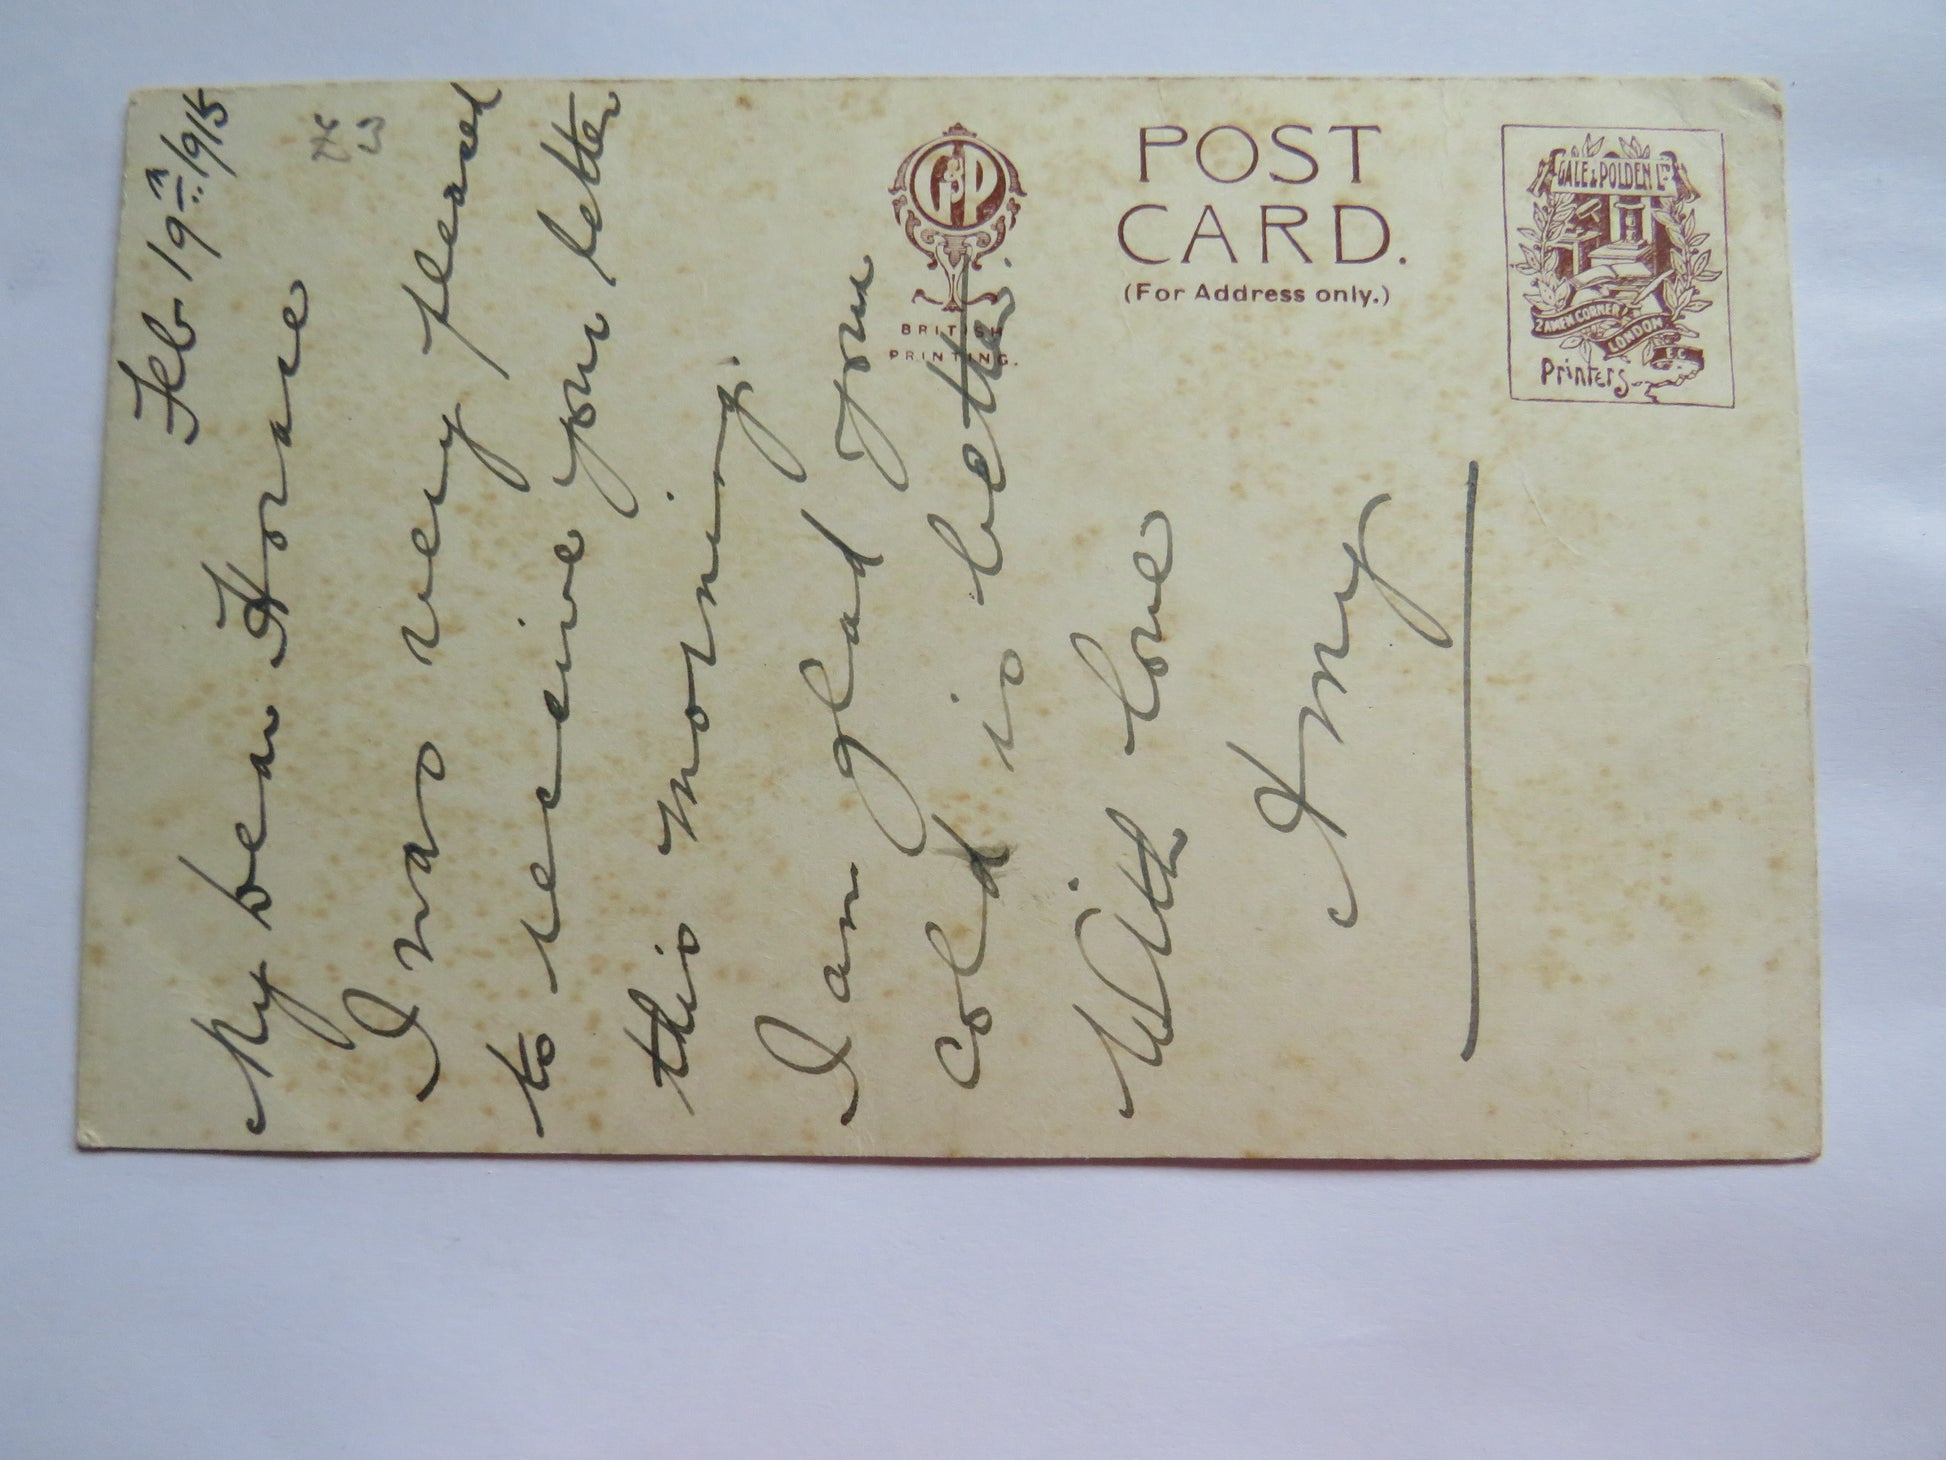 Feb 19th 1915
£3
My Dear Horace
I was very pleased
to receive your letter
this morning.
I am glad you
cold is better.
With love
Amy
G&P
BRITISH
PRINTING.
POST
CARD.
(For Address only.)
GALE & POLDEN LTD
2 AMEN CORNER
LONDON
E.C.
Printers